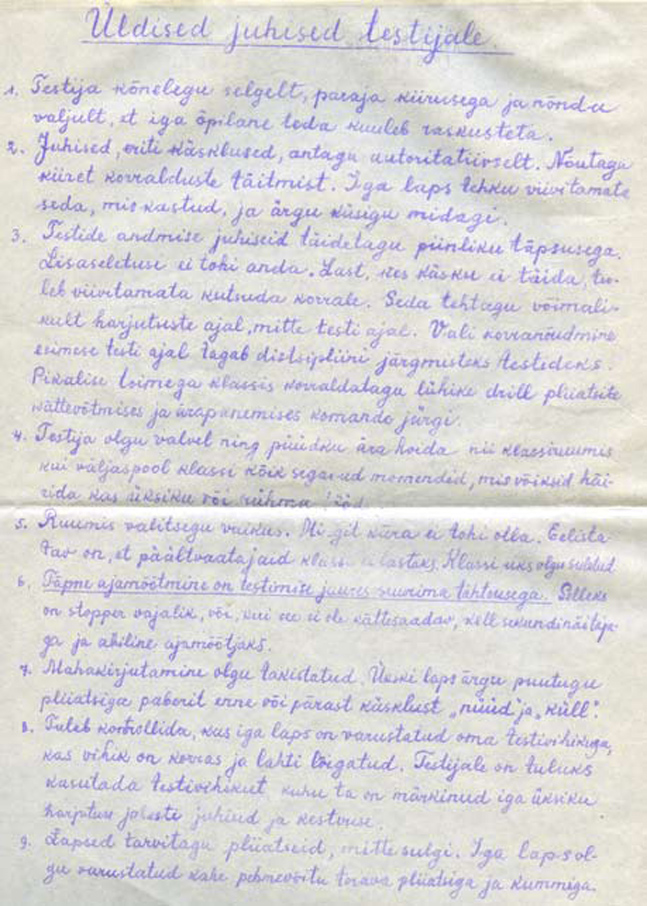 Üldised juhised testijale.
1. Testija kõnelegu selgelt, paraja kiirusega ja nõnda
valjult, et iga õpilane teda kuuleb raskusteta.
2. Juhised, eriti käsklused, antagu autoritatiivselt. Nõutagu
kiiret korralduste täitmist. Iga laps tehku viivitamata
seda, mis kästud, ja ärgu küsigu midagi.
3. Testide andmise juhiseid täidetagu piinliku täpsusega.
Lisaseletusi ei tohi anda. Last, kes käsku ei täida, tu-
leb viivitamata kutsuda korrale. Seda tehtagu võimali-
kult harjutuste ajal, mitte testi ajal. Vali korranõudmine
esimese testi ajal tagab distsipliini järgmisteks testideks.
Pikalise toimega klassis korraldatagu lühike drill pliiatsite
kättevõtmises ja ärapanemises komando järgi.
4. Testija olgu valvel ning püüdku ära hoida nii klassiruumis
kui väljaspool klassi kõik segavad momendid, mis võiksid häi-
rida kas üksiku või rühma tööd.
5. Ruumis valitsegu vaikus. Mingit kära ei tohi olla. Eelista-
tav on, et päältvaatajaid klassi ei lastaks. Klassi uks olgu suletud.
6. Täpne ajamõõtmine on testimise juures suurima tähtsusega. Selleks
on stopper vajalik, või, kui see ei ole kättesaadav, kell sekundinäitaja-
ga ja abiline ajamõõtjaks.
7. Mahakirjutamine olgu takistatud. Ükski laps ärgu puutugu
pliiatsiga paberit enne või pärast käsklust „nüüd" ja „küll".
8. Tuleb kontrollida, kas iga laps on varustatud oma testivihikuga,
kas vihik on korras ja lahti lõigatud. Testijale on tuluks
kasutada testivihikut kuhu ta on märkinud iga üksiku
harjutuse ja testi juhised ja kestvuse.
9. Lapsed tarvitagu pliiatseid, mitte sulgi. Iga laps ol-
gu varustatud kahe pehmevõitu terava pliiatsiga ja kummiga.